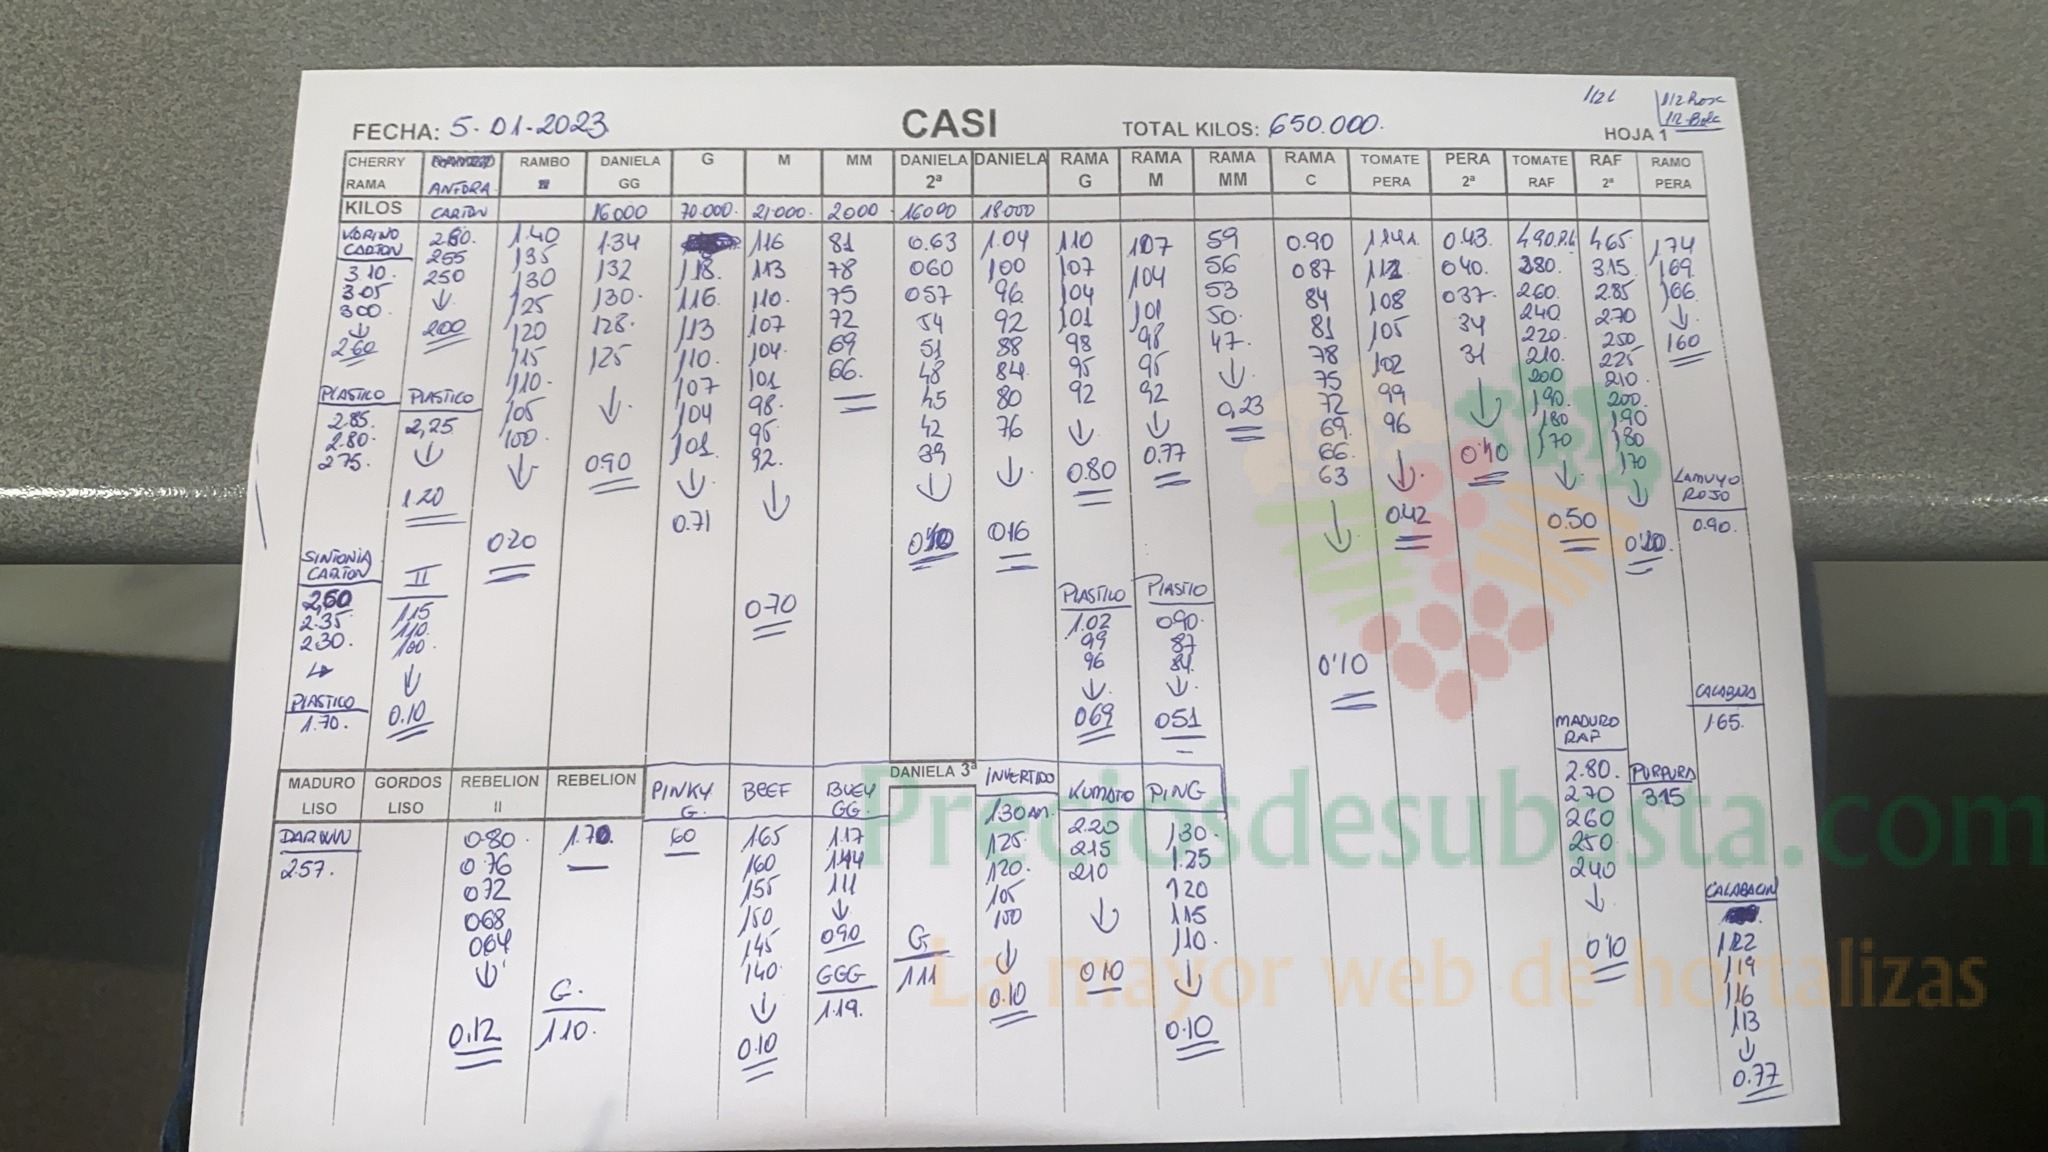 1/2L
1/2 Rosc
1/2 Bolc
FECHA: 5-01-2023
CASI
TOTAL KILOS: 650.000.
HOJA 1
CHERRY RAMA
ANFORA
RAMBO
DANIELA GG
G
M
MM
DANIELA 2ª
DANIELA
RAMA G
RAMA M
RAMA MM
RAMA C
TOMATE PERA
PERA 2ª
TOMATE RAF
RAF 2ª
RAMO PERA
KILOS
CARTON
16000
70.000.
21.000.
2000
16000
18000
VORINO
CARTON
3.10.
3.05
300.
↓
2.60
PLASTICO
2.85
2.80.
275.
SINTONIA
CARTON
2,60
2.35
2.30.
PLASTICO
1.70.
280.
255
250
↓
200
PLASTICO
2,25
↓
1.20
II
1.15
110.
100.
↓
0.10
1.40
135
130
125
120
115
110.
105
100.
↓
020
1.34
132
130.
128.
125
↓
090
118.
116.
113
110.
107
104
101.
↓
0.71
116
113
110.
107
104.
101
98.
95
92.
↓
070
81
78
75
72
69
66.
0.63
060
057
54
51
48
45
42
39
↓
1.04
100
96.
92
88
84.
80
76
↓
016
110
107
104
101
98
95
92
↓
0.80
PLASTICO
1.02
99
96
↓
069
107
104
101
98
95
92
↓
0.77
PLASTIO
090.
87
84.
↓
051
59
56
53
50.
47.
↓
0,23
0.90
087
84
81
78
75
72
69.
66.
63
↓
0'10
112
108
105
102
99
96
↓
042
043.
040.
037.
34
31
↓
0'10
490 P.L
280.
260.
240
220.
210.
200
190.
180
170
↓
0.50
MADURO
RAF
2.80.
270
260
250
240
↓
0'10
465.
3.15
2.85
270
250
225
210.
200.
190
180
170
↓
PURPURA
3.15
1.74
169.
166.
↓
160
LAMUYO
ROJO
0.90.
CALABAZA
1.65.
CALABACIN
122
119
116
113
↓
0.77
MADURO LISO
GORDOS LISO
REBELION II
REBELION
PINKY G.
BEEF
BUEY GG.
DANIELA 3ª
INVERTIDO
KUMATO
PING
DARWIN
2.57.
0.80.
0.76
072
068
064
↓
0.12
1.70
G.
110.
60
165
160
155
150
145
140.
↓
0.10
1.17
114
111
↓
090
GGG
1.19.
G.
111
1.30 AM.
125.
120.
105
100
↓
0.10
2.20
215
210
↓
010
1,30.
1.25
120
115
110.
↓
0.10
Preciosdesubasta.com
La mayor web de hortalizas